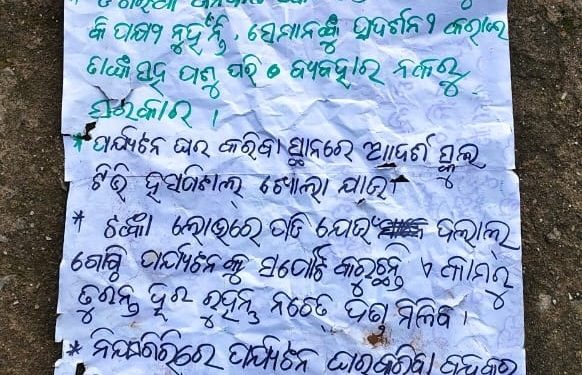 କି ପଣ୍ୟ ନୁହଁନ୍ତି, ସେମାନଙ୍କୁ ପ୍ରଦର୍ଶନୀ କରାଇ
ତାଙ୍କ ସହ ପଶୁ ପରି ବ୍ୟବହାର ନକରୁ
ସରକାର ।
* ପର୍ଯ୍ୟଟନ ଘର କରିବା ସ୍ଥାନରେ ଆଦର୍ଶ ସ୍କୁଲ
ଟିଭି ହସପିଟାଲ୍ ଖୋଲା ଯାଉ ।
* ଟଙ୍କା ଲୋଭରେ ପଡି ଯେଉଁ ଦଲାଲ୍
ଗୋଷ୍ଠି ପର୍ଯ୍ୟଟନକୁ ସପୋର୍ଟ କରୁଛନ୍ତି ଏ କାମରୁ
ତୁରନ୍ତ ଦୂର ରୁହନ୍ତୁ ନଚେତ୍ ଦଣ୍ଡ ମିଳିବ ।
* ନିୟମଗିରିରେ ପର୍ଯ୍ୟଟନ ଘରକରିବା ବନ୍ଦକର